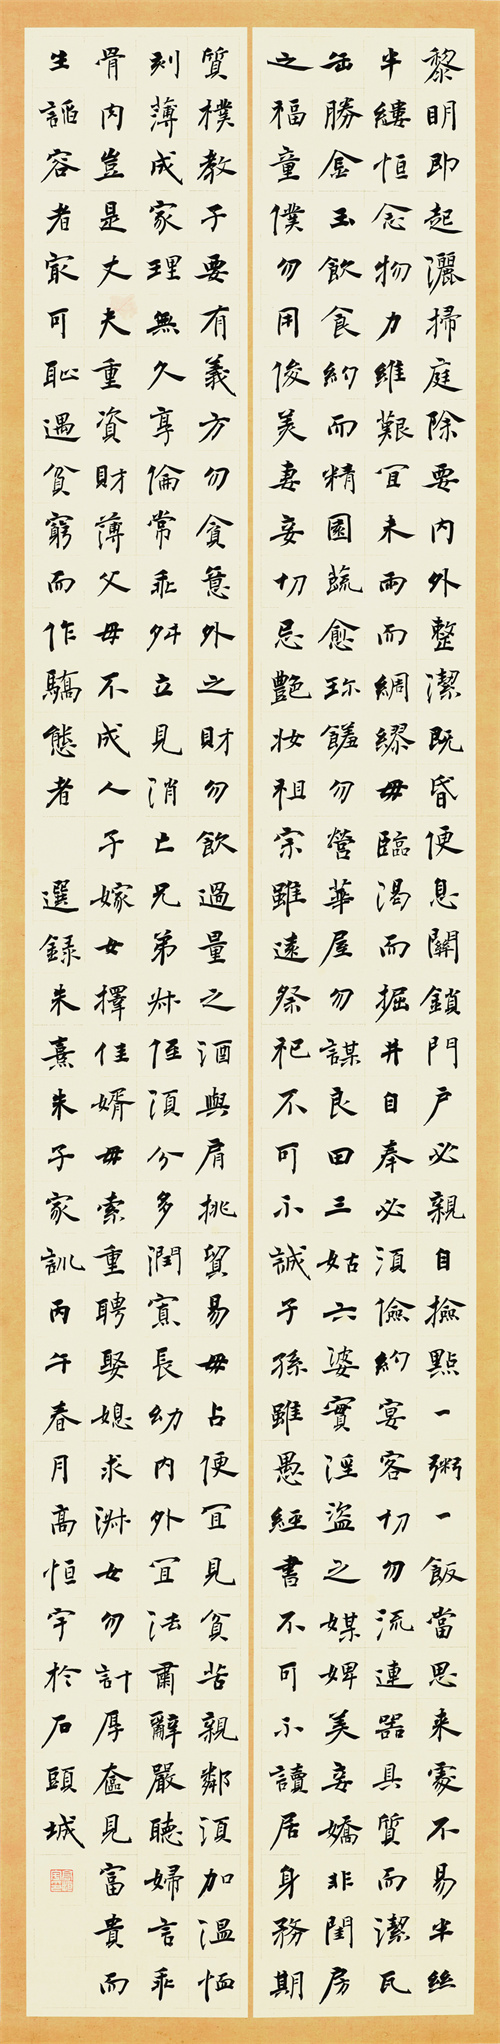 黎明即起灑掃庭除要内外整潔既昏便息關鎖門户必親自撿點一粥一飯當思来處不易半絲
半縷恒念物力維艱宜未雨而綢繆毋臨渴而掘井自奉必須儉約宴客切勿流連器具質而潔瓦
缶勝金玉飲食約而精園蔬愈珎饈勿營華屋勿謀良田三姑六婆實淫盗之媒婢美妾嬌非閨房
之福童僕勿用俊美妻妾切忌艷妝祖宗雖遠祭祀不可不誠子孫雖愚經書不可不讀居身務期
質樸教子要有義方勿貪意外之財勿飲過量之酒與肩挑貿易毋占便宜見貧苦親鄰須加温恤
刻薄成家理無久享倫常乖舛立見消亡兄弟叔侄須分多潤寡長幼内外宜法肅辭嚴聽婦言乖
骨内豈是丈夫重資財薄父母不成人子嫁女擇佳婿毋索重聘娶媳求淑女勿計厚奩見富貴而
生諂容者最可恥遇貧窮而作驕態者 選録朱熹朱子家訓丙午春月高恒宇於石頭城